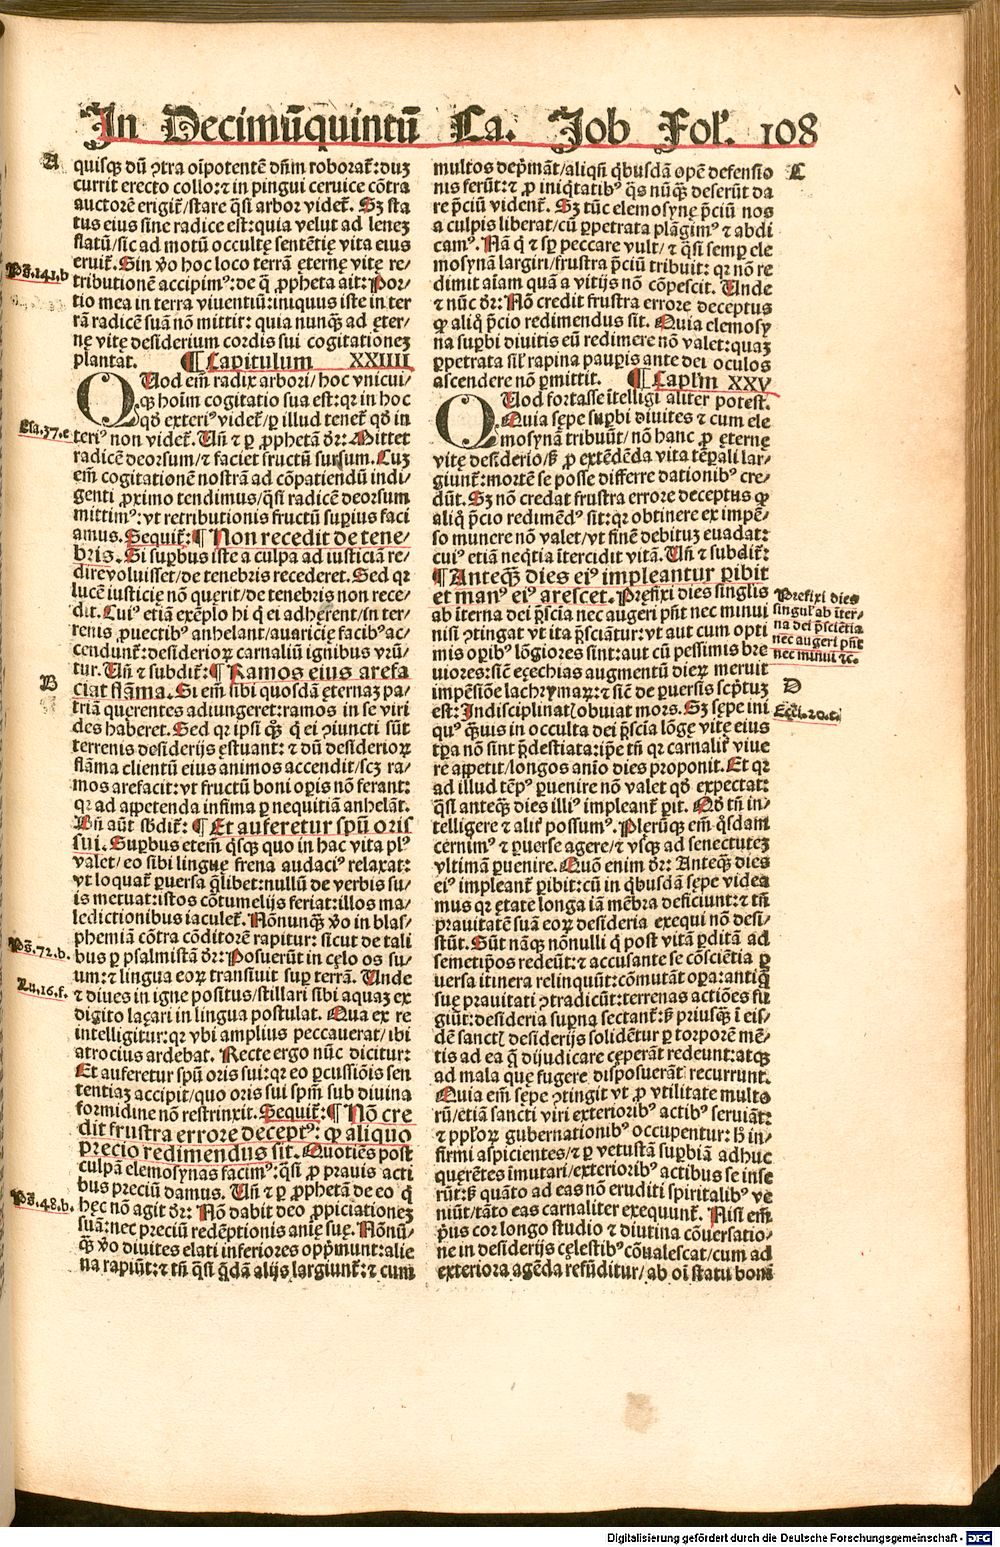 In Decimũquintũ Ca. Job Fol'. 108
A
quisq̃ dũ ɔtra oĩpotentẽ dñm roborat̃: duz
currit erecto collo: ⁊ in pingui ceruice cõtra
auctorẽ erigit̃/ stare q̃si arbor videt̃. Sz sta
tus eius sine radice est: quia velut ad lenez
flatũ/ sic ad motũ occultę sentẽtię vita eius
eruit̃. Sin v̊o hoc loco terrã ęternę vitę re⸗
Ps̃.141.b
tributionẽ accipimꝰ: de q̃ ꝓpheta ait: Por⸗
tio mea in terra viuentiũ: iniquus iste in ter
rã radicẽ suã nõ mittit: quia nunq̃ ad ęter⸗
nę vitę desiderium cordis sui cogitationez
plantat. ¶ Capitulum XXIIII
QUod em̃ radix arbori/ hoc vnicui⸗
q̃ hoĩm cogitatio sua est: qr in hoc
qd̛ exteriꝰ videt̃/ ꝑ illud tenet̃ qd̛ in
Esa.37.e
teriꝰ non videt̃. Uñ ⁊ ꝑ ꝓphetã dr̃: Mittet
radicẽ deorsum/ ⁊ faciet fructũ sursum. Cuz
em̃ cogitationẽ nostrã ad cõpatiendũ indi⸗
genti ꝓximo tendimus/ q̃si radicẽ deorsum
mittimꝰ: vt retributionis fructũ suꝑius faci
amus. Sequit̃: ¶ Non recedit de tene⸗
bris. Si suꝑbus iste a culpa ad iusticiã re⸗
dire voluisset/ de tenebris recederet. Sed qr
lucẽ iusticię nõ quęrit/ de tenebris non rece⸗
dit. Cuiꝰ etiã exẽplo hi q̇ ei adherent/ in ter⸗
renis ꝓuectibꝰ anhelant/ auaricię facibꝰ ac⸗
cendunt̃: desiderioꝝ carnaliũ ignibus vrũ⸗
tur. Uñ ⁊ subdit̃: ¶ Ramos eius arefa
B
ciat flãma. Si em̃ sibi quosdã ęternaz pa⸗
triã querentes adiungeret: ramos in se viri
des haberet. Sed qr ipsi q̊ꝫ q̇ ei ɔiuncti sũt
terrenis desiderijs ęstuant: ⁊ dũ desiderioꝝ
flãma clientũ eius animos accendit/ scz ra⸗
mos arefacit: vt fructũ boni oꝑis nõ ferant:
qr ad appetenda infima ꝑ nequitiã anhelãt.
Bñ aũt sb̛dit̃: ¶ Et auferetur spũ oris
sui. Suꝑbus etem̃ q̇sq̃ quo in hac vita plꝰ
valet/ eo sibi linguę frena audaciꝰ relaxat:
vt loquat̃ ꝑuersa q̃libet: nullũ de verbis su⸗
is metuat: istos cõtumelijs feriat: illos ma⸗
ledictionibus iaculet̃. Nõnunq̃ v̊o in blas⸗
phemiã cõtra cõditorẽ rapitur: sicut de tali
Ps̃.72.b.
bus ꝑ psalmistã dr̃: Posuerũt in cęlo os su⸗
um: ⁊ lingua eoꝝ transiuit suꝑ terrã. Unde
Lu.16.f.
⁊ diues in igne positus/ stillari sibi aquaz ex
digito lazari in lingua postulat. Qua ex re
intelligitur: qr vbi amplius peccauerat/ ibi
atrocius ardebat. Recte ergo nũc dicitur:
Et auferetur spũ oris sui: qr eo ꝑcussiõis sen
tentiaz accipit/ quo oris sui spm̃ sub diuina
formidine nõ restrinxit. Sequit̃: ¶ Nõ cre
dit frustra errore deceptꝰ: ꝙ aliquo
precio redimendus sit. Quotiẽs post
culpã elemosynas facimꝰ: q̃si ꝓ prauis acti
bus preciũ damus. Uñ ⁊ ꝑ ꝓphetã de eo q̇
Ps̃.48.b.
hęc nõ agit dr̃: Nõ dabit deo ꝓpiciationez
suã: nec preciũ redẽptionis anię suę. Nõnũ⸗
q̃ v̊o diuites elati inferiores opp̃munt: alie
na rapiũt: ⁊ tñ q̃si q̃dã alijs largiunt̃: ⁊ cum
C
multos dep̃mãt/ aliqñ q̇busdã opẽ defensio
nis ferũt: ⁊ ꝓ iniq̇tatibꝰ q̃s nũq̃ deserũt da
re p̃ciũ vident̃. Sz tũc elemosynę p̃ciũ nos
a culpis liberat/ cũ ꝑpetrata plãgimꝰ ⁊ abdi
camꝰ. Nã q̇ ⁊ sp̱ peccare vult/ ⁊ q̃si semꝑ ele
mosynã largiri/ frustra p̃ciũ tribuit: qr nõ re
dimit aĩam quã a vitijs nõ cõpescit. Unde
⁊ nũc dr̃: Nõ credit frustra errore deceptus
ꝙ aliq̊ p̃cio redimendus sit. Quia elemosy
na suꝑbi diuitis eũ redimere nõ valet: quaz
ꝑpetrata sil̛ rapina pauꝑis ante dei oculos
ascendere nõ ꝑmittit. ¶ Caplm̃ XXV
QUod fortasse ĩtelligi aliter potest.
Quia sępe suꝑbi diuites ⁊ cum ele
mosynã tribuũt/ nõ hanc ꝓ ęternę
vitę desiderio/ ß ꝓ extẽdẽda vita tẽꝑali lar⸗
giunt̃: mortẽ se posse differre dationibꝰ cre⸗
dũt. Sz nõ credat frustra errore deceptus ꝙ
aliq̊ p̃cio redimẽdꝰ sit: qr obtinere ex impẽ⸗
so munere nõ valet/ vt finẽ debituz euadat:
cuiꝰ etiã neq̇tia ĩtercidit vitã. Uñ ⁊ subdit̃:
¶ Anteq̃ dies eiꝰ impleantur ꝑibit
et manꝰ eiꝰ arescet. Pręfixi dies singlis
ab ĩterna dei p̃scia nec augeri pñt nec minui
nisi ɔtingat vt ita p̃sciãtur: vt aut cum opti
mis oꝑibꝰ lõgiores sint: aut cũ pessimis bre
uiores: siẽ ęzechias augmentũ dieꝝ meruit
impẽsiõe lachrymaꝝ: ⁊ siẽ de ꝑuersis scp̃tuz
est: Indisciplinatꝭ obuiat mors. Sz sępe ini
quꝰ q̃uis in occulta dei p̃scia lõgę vitę eius
tp̱a nõ sint p̃destiata: ip̃e tñ qr carnalit̃ viue
re appetit/ longos anĩo dies proponit. Et qr
ad illud tẽpꝰ ꝑuenire nõ valet qd̛ expectat:
q̃si anteq̃ dies illiꝰ impleant̃ ꝑit. Qd̛ tñ in⸗
telligere ⁊ alit̃ possumꝰ. Plerũq̃ em̃ q̃sdam
cernimꝰ ⁊ ꝑuerse agere/ ⁊ vsq̃ ad senectutez
vltimã ꝑuenire. Quõ enim dr̃: Anteq̃ dies
eiꝰ impleant̃ ꝑibit: cũ in q̇busdã sępe videa
mus qr ętate longa iã mẽbra deficiunt: ⁊ tñ
prauitatẽ suã eoꝝ desideria exequi nõ desi⸗
stũt. Sũt nãq̃ nõnulli q̇ post vitã ꝑditã ad
semetip̃os redeũt: ⁊ accusante se cõsciẽtia ꝑ
uersa itinera relinquũt: cõmutãt oꝑa: antiq̃
suę prauitati ɔtradicũt: terrenas actiões fu
giũt: desideria suꝑna sectant̃: ß priusq̃ ĩ eis⸗
dẽ sanctꝭ desiderijs solidẽtur ꝑ torporẽ mẽ⸗
tis ad ea q̃ dijudicare cęperãt redeunt: atq̃
ad mala quę fugere disposuerãt recurrunt.
Quia em̃ sępe ɔtingit vt ꝓ vtilitate multo
rũ/ etiã sancti viri exterioribꝰ actibꝰ seruiãt:
⁊ ppłoꝝ gubernationibꝰ occupentur: h̛ in⸗
firmi aspicientes/ ⁊ ꝑ vetustã suꝑbiã adhuc
querẽtes ĩmutari/ exterioribꝰ actibus se inse
rũt: ß quãto ad eas nõ eruditi spiritalibꝰ ve
niũt/ tãto eas carnaliter exequunt̃. Nisi em̃
p̃us cor longo studio ⁊ diutina cõuersatio⸗
ne in desiderijs cęlestibꝰ cõualescat/ cum ad
exteriora agẽda refũditur/ ab oĩ statu boni
Prefixi dies
singul' ab ĩter⸗
na dei p̃sciẽtia
nec augeri pñt
nec minui ⁊c.
D
Ecci.20.c.
Digitalisierung gefördert durch die Deutsche Forschungsgemeinschaft - DFG